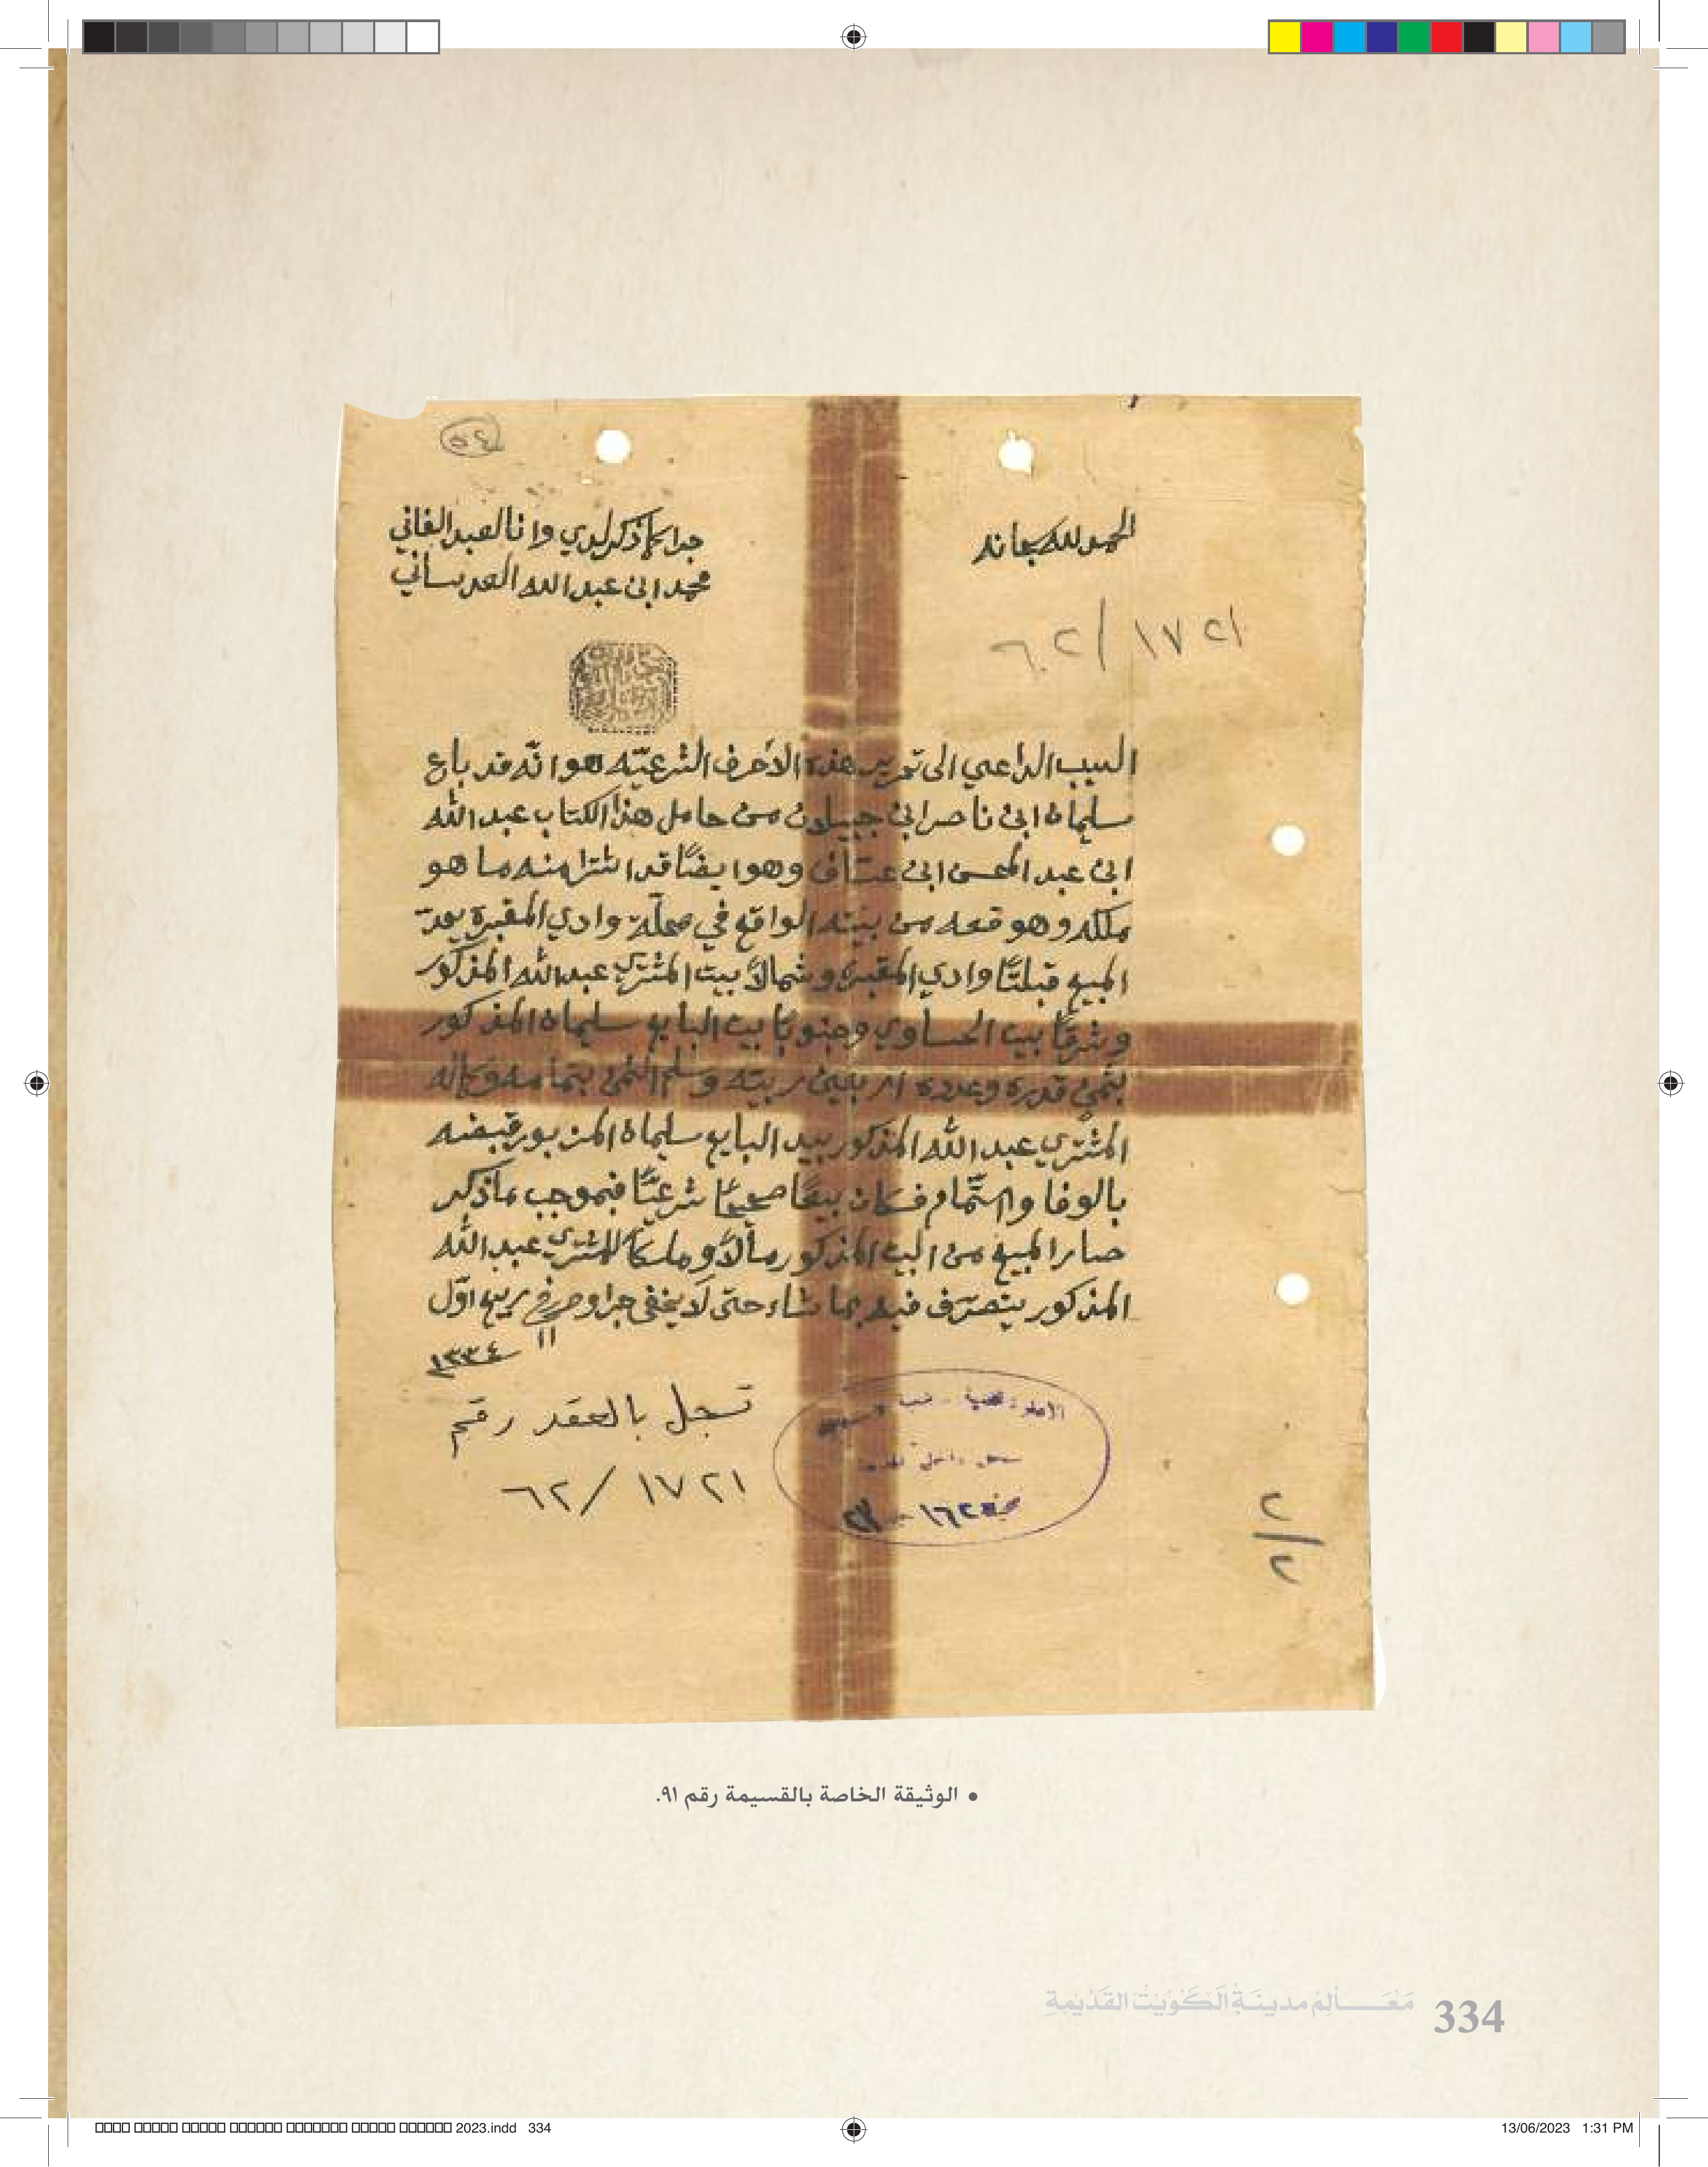 ٥٤
الحمد لله سبحانه
جرا كما ذكر لدي وانا العبد الفاني
محمد ابن عبد الله العدساني
١٧٢١/٦٠٢
السبب الداعي الى تحرير هذه الأحرف الشرعيّه هو انّه قد باع
سليمان ابن ناصر ابن جبيلان من حامل هذا الكتاب عبد الله
ابن عبد المحسن ابن عساف وهو ايضًا قد اشترا منه ما هو
ملكه وهو قطعه من بيته الواقع في محلّة وادي المقبرة يحدّ
المبيع قبلتًا وادي المقبرة وشمالاً بيت المشتري عبد الله المذكور
وشرقًا بيت الحساوي وجنوبًا بيت البايع سليمان المذكور
بثمن قدره وعدده اربعين ربيّه وسلم الثمن بتمامه وكماله
المشتري عبد الله المذكور بيد البايع سليمان المزبور قبضه
بالوفا والتّمام فكان بيعًا صحيحًا شرعيًّا فبموجب ما ذكر
صار المبيع من البيت المذكور مالاً وملكًا للمشتري عبد الله
المذكور يتصرّف فيه بما شاء حتى لا يخفى جرا وحرر في ربيع اوّل
١١ ١٣٣٤
تسجل بالعقد رقم
١٧٢١/٦٢
١٦٢
٢/٢
• الوثيقة الخاصة بالقسيمة رقم ٩١.
مَعَـــالِمُ مدينَـةِ الكُوَيْتْ القَدْيمةِ 334
2023.indd 334
13/06/2023 1:31 PM